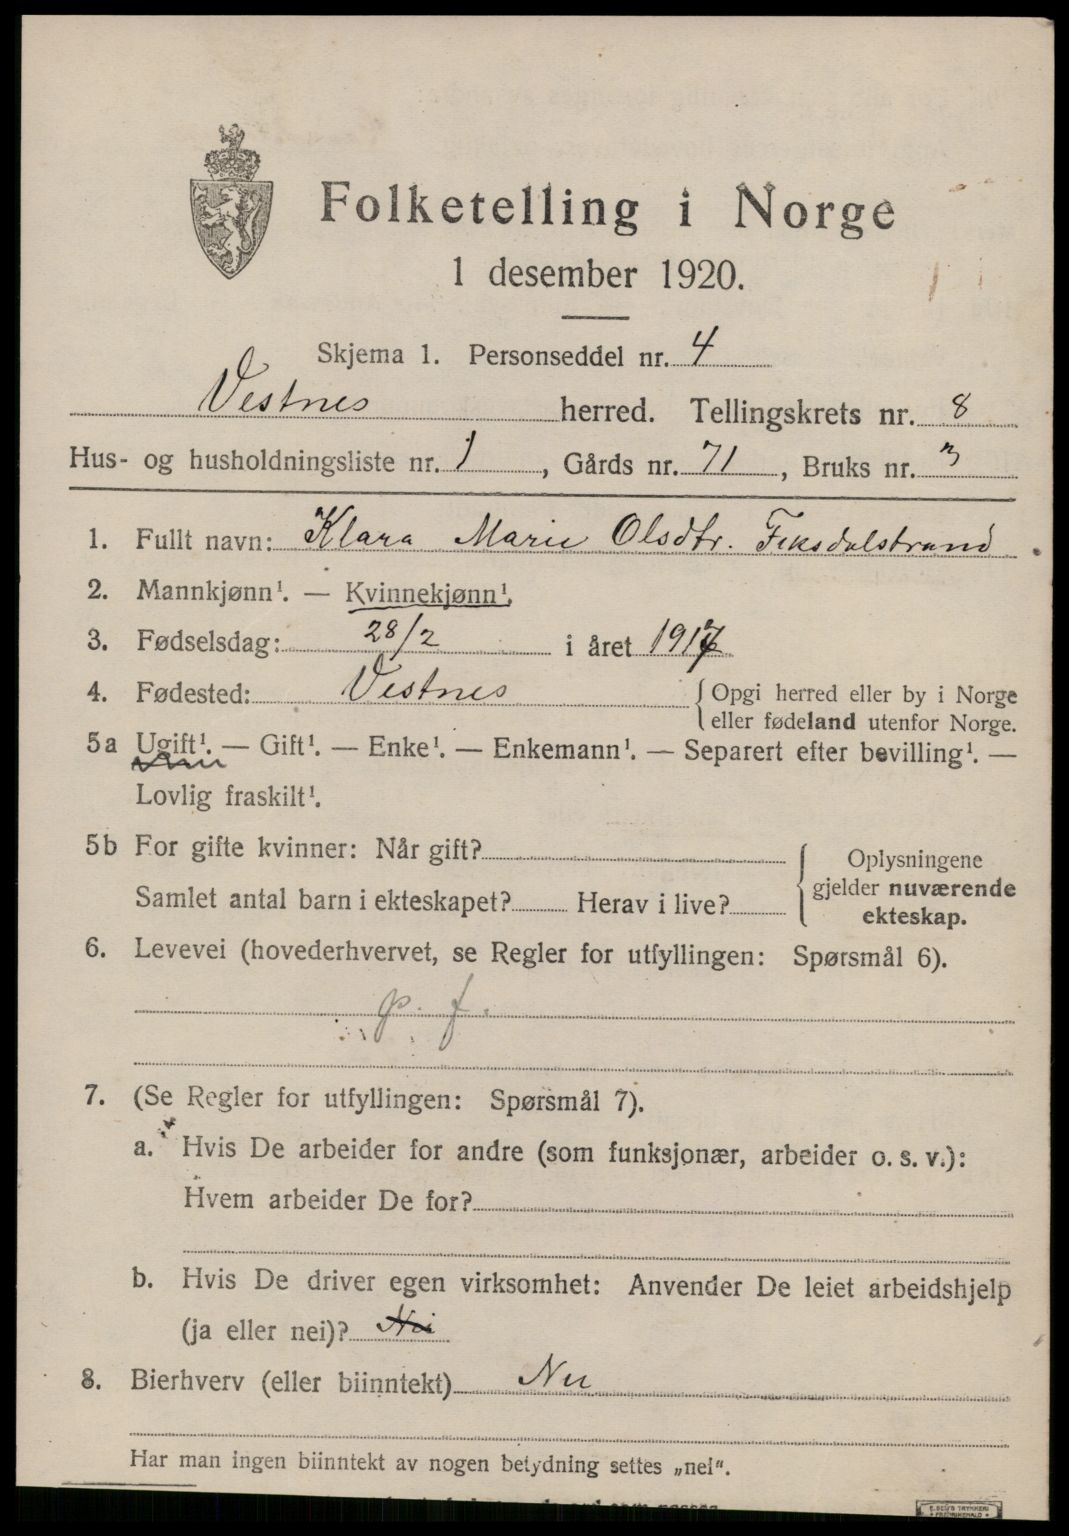 Folketelling i Norge
1 desember 1920.
Skjema 1. Personseddel nr. 4
Vestnes herred. Tellingskrets nr. 8
Hus- og husholdningsliste nr. 1, Gårds nr. 71, Bruks nr. 3
1. Fullt navn: Klara Marie Olsdtr. Fiksdalstrand
2. Mannkjønn¹. — Kvinnekjønn¹.
3. Fødselsdag: 28/2 i året 1917
4. Fødested: Vestnes {Opgi herred eller by i Norge
eller fødeland utenfor Norge.
5a Ugift¹. — Gift¹. — Enke¹. — Enkemann¹. — Separert efter bevilling¹. —
Lovlig fraskilt¹.
5b For gifte kvinner: Når gift? { Oplysningene
gjelder nuværende
Samlet antal barn i ekteskapet? Herav i live? ekteskap.
6. Levevei (hovederhvervet, se Regler for utfyllingen: Spørsmål 6).
p. f.
7. (Se Regler for utfyllingen: Spørsmål 7).
a. Hvis De arbeider for andre (som funksjonær, arbeider o. s. v.):
Hvem arbeider De for?
b. Hvis De driver egen virksomhet: Anvender De leiet arbeidshjelp
(ja eller nei)? Nei
8. Bierhverv (eller biinntekt) Nei
Har man ingen biinntekt av nogen betydning settes „nei“.